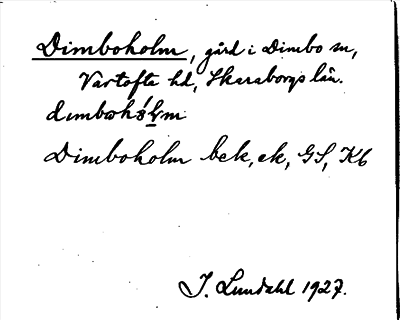 Dimboholm, gård i Dimbo sn,
Vartofta hd, Skaraborgs län.
Dimboholm bek, ek, GS, Kb
I. Lundahl 1927.